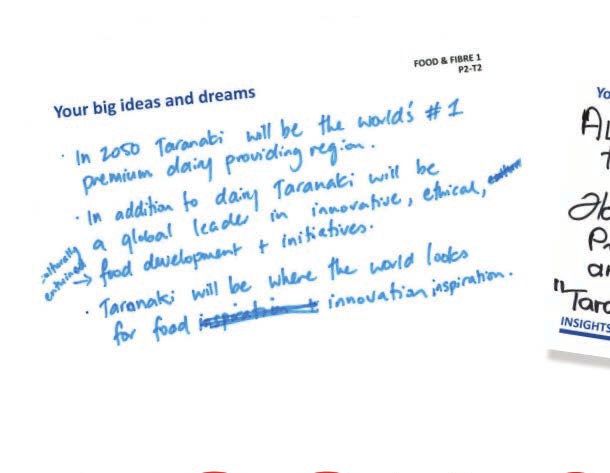 FOOD & FIBRE 1
P2-T2
Your big ideas and dreams
· In 2050 Taranaki will be the world's #1
premium dairy providing region.
· In addition to dairy Taranaki will be
a global leader in innovative, ethical,
culturally
entwined → food development + initiatives.
· Taranaki will be where the world looks
for food innovation inspiration.
Yo
AL
t
ab
P
ar
"Tara
INSIGHTS